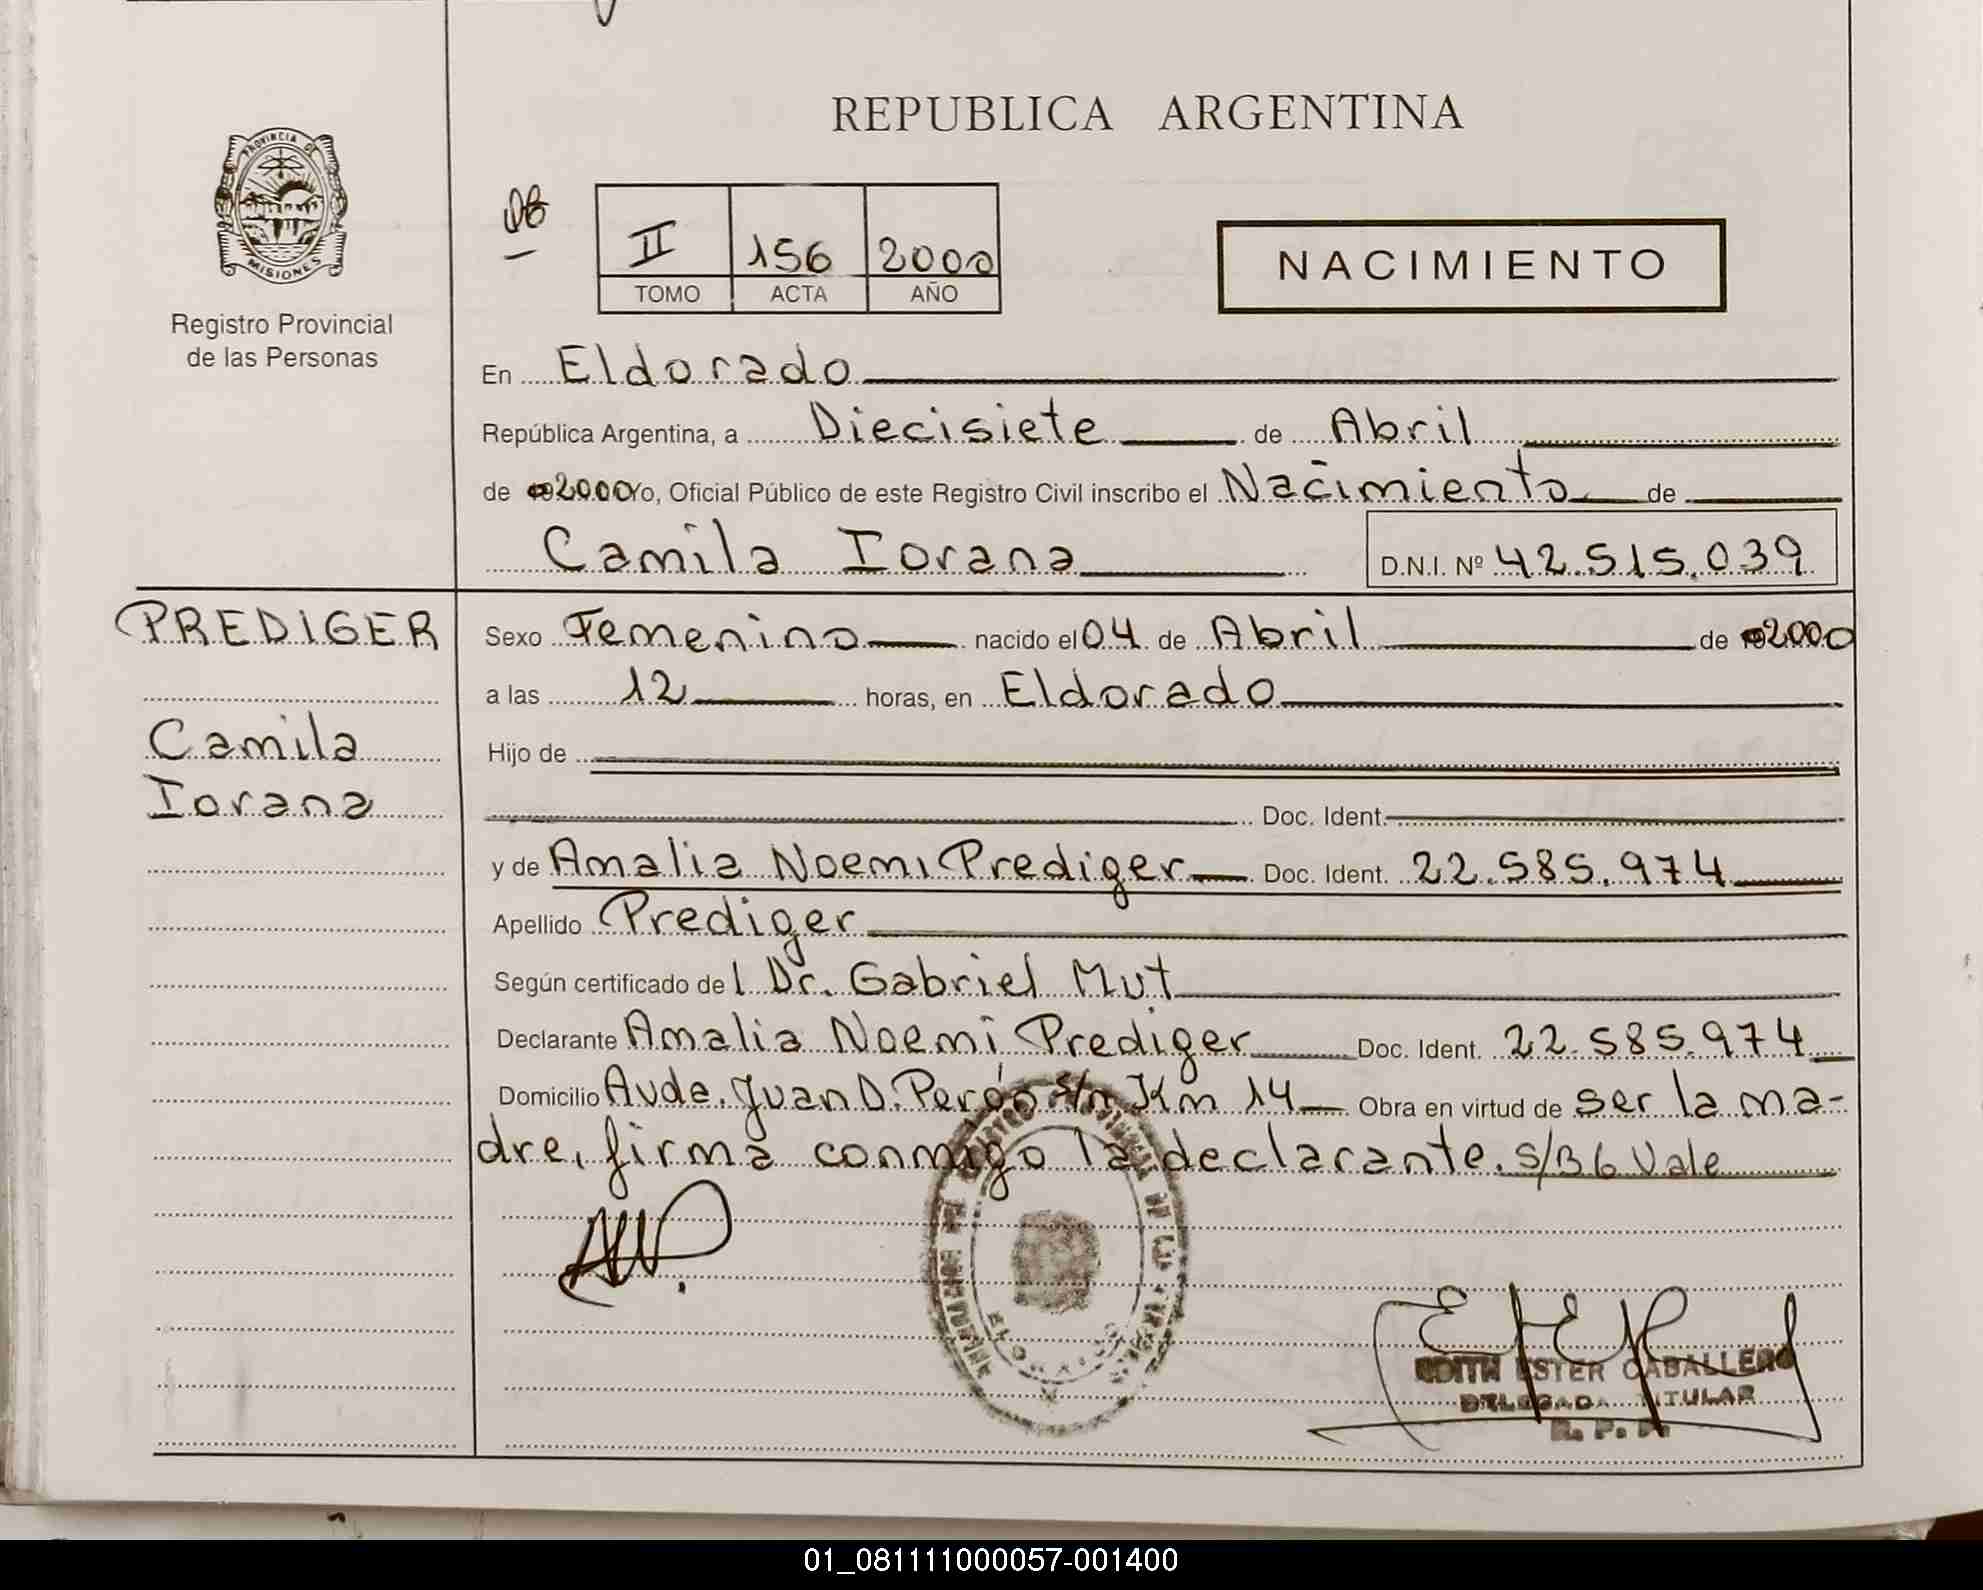 REPUBLICA ARGENTINA
PROVINCIA DE
MISIONES
Registro Provincial
de las Personas
II 156 2000
TOMO ACTA AÑO
NACIMIENTO
En Eldorado
República Argentina, a Diecisiete de Abril
de 2000 Yo, Oficial Público de este Registro Civil inscribo el Nacimiento de
Camila Iorana D.N.I. Nº 42.515.039
PREDIGER
Camila
Iorana
Sexo Femenino nacido el 04 de Abril de 2000
a las 12 horas, en Eldorado
Hijo de
Doc. Ident.
y de Amalia Noemi Prediger Doc. Ident. 22.585.974
Apellido Prediger
Según certificado de l Dr. Gabriel Mut
Declarante Amalia Noemi Prediger Doc. Ident. 22.585.974
Domicilio Avda. Juan D. Perón s/n Km 14 Obra en virtud de ser la ma-
dre, firma conmigo la declarante. s/B6 Vale
EDITH ESTER CABALLERO
DELEGADA TITULAR
R. P. P.
01_081111000057-001400